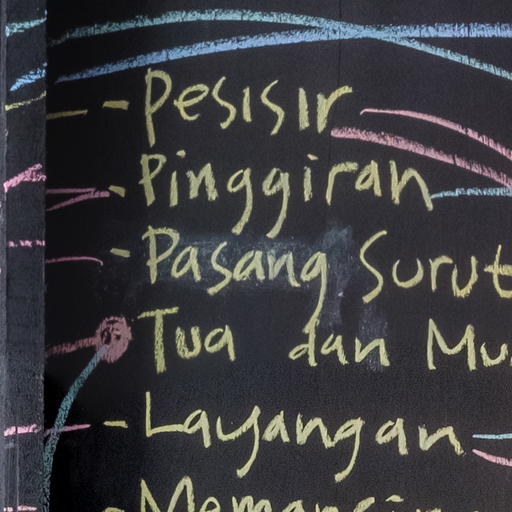 - Pesisir
- Pinggiran
- Pasang Surut
Tua dan
- Layangan